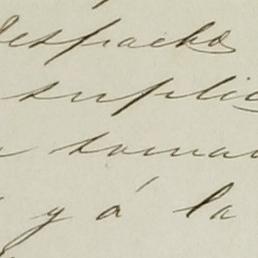 despacho
suplic
n toman
y á la